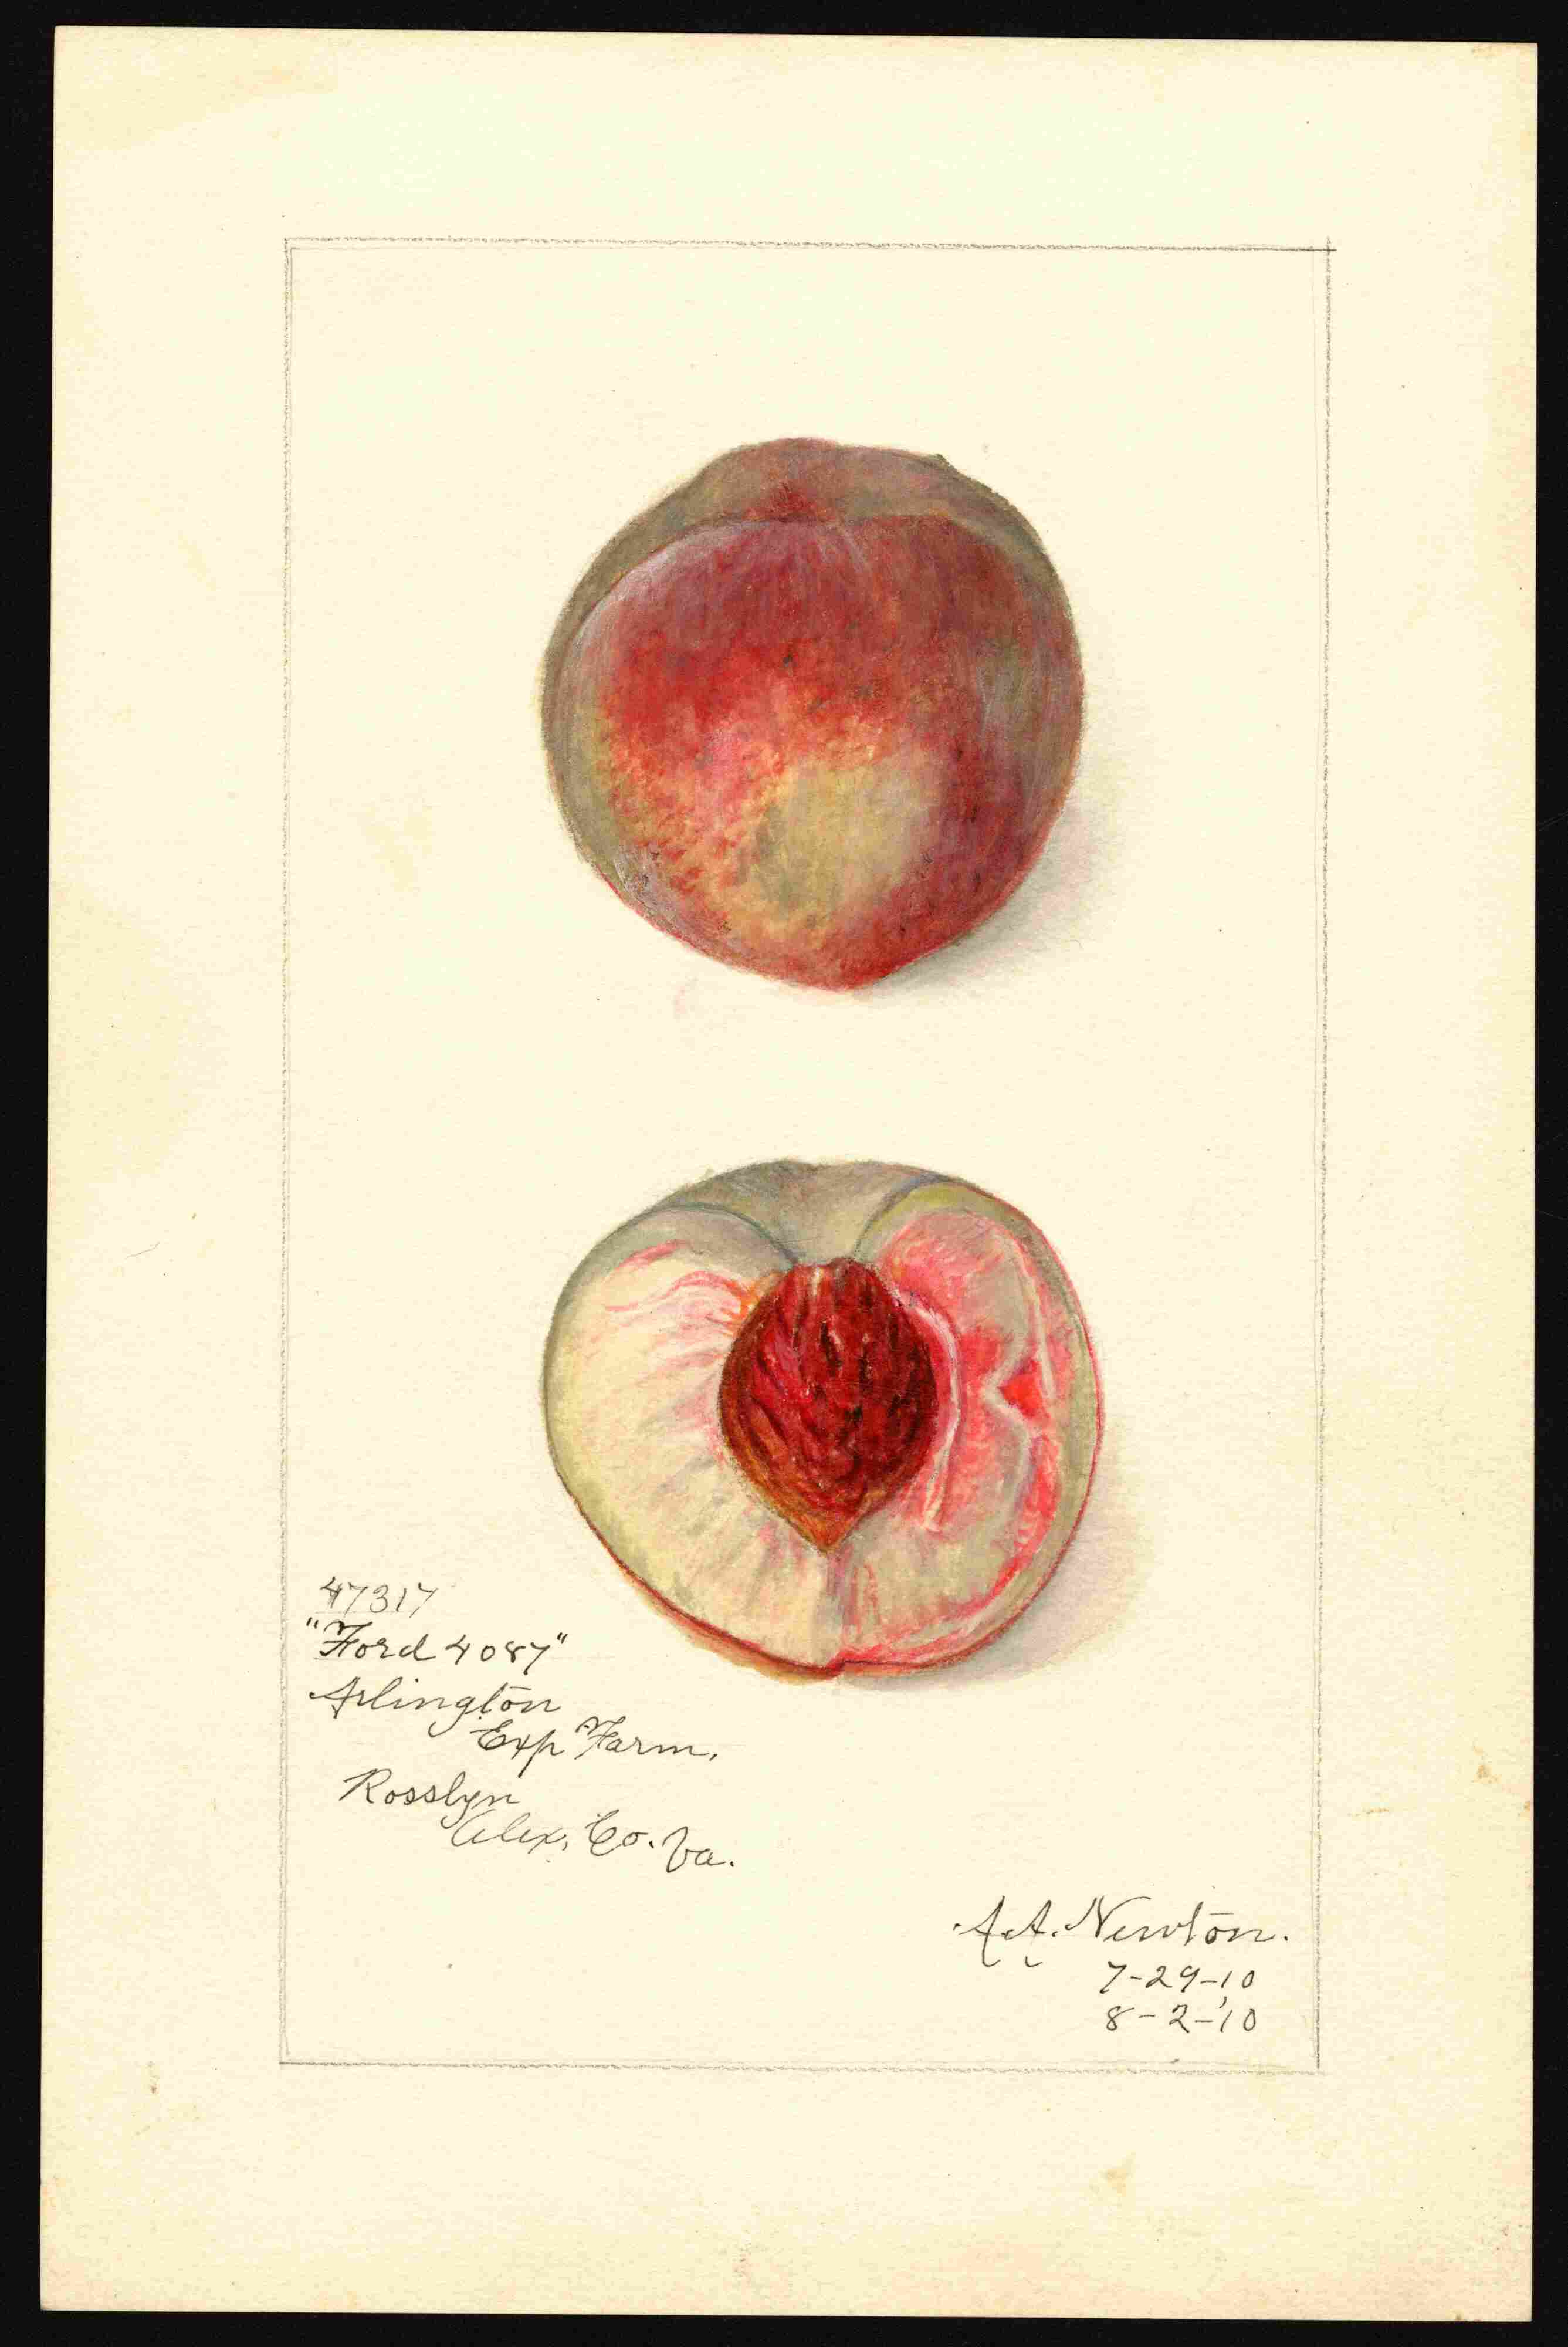 47317
"Ford 4087"
Arlington
Exp Farm.
Rosslyn
Alex. Co. Va.
A.A. Newton.
7-29-10
8-2-'10